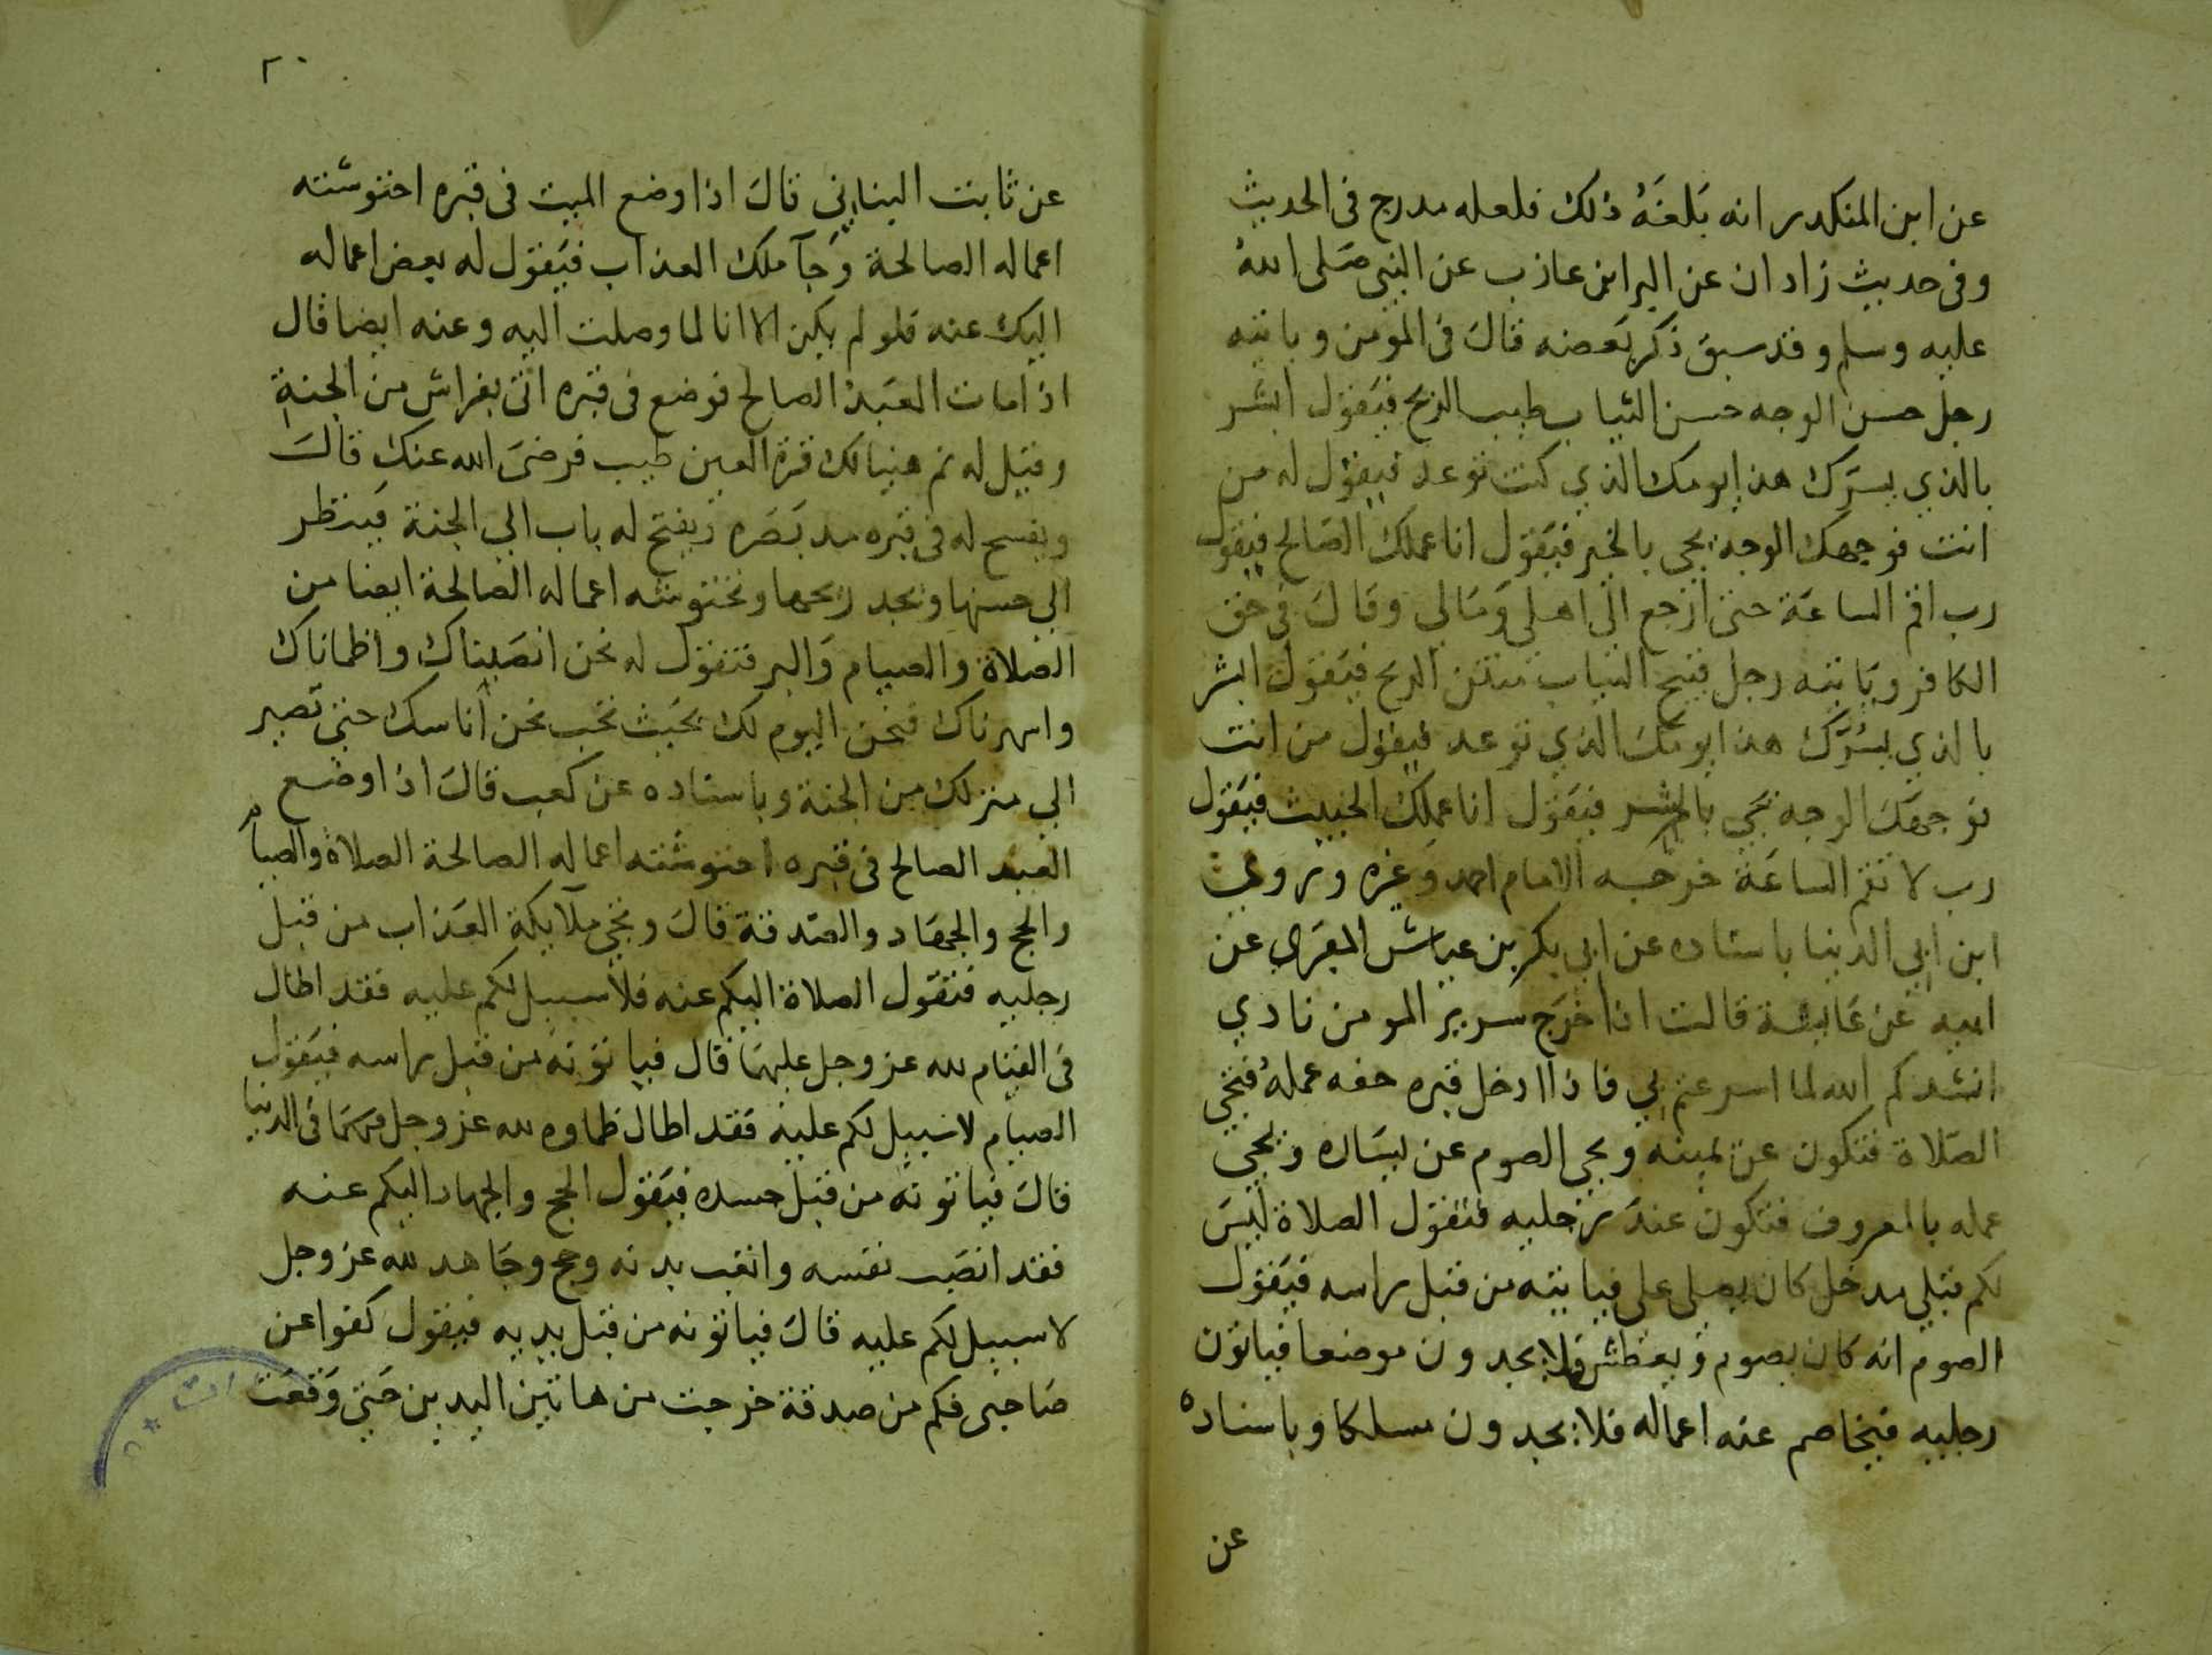 عن ابن المنكدر انه بَلغَهُ ذلك فلعله مدرج فى الحديث
وفى حديث زاد ان عن البرا بن عازب عن النبى صَلى اللهُ
عليه وسلم وقد سبق ذكر بَعضه قالَ فى المؤمن وياتيه
رجل حسن الوجه حسن الثياب طيب الريح فيَقول ابشر
بالذي يسرّك هذا يومك الذي كنت توعد فيقول له من
انت فوجهك الوجه يجى بالخير فيَقول انا عملك الصَالح فيقول
رب اقم الساعَة حتى ارجع الى اهلى وَمَالي وقالَ فى حق
الكافر ويَاتيه رجل قبيح الثياب منتن الريح فيَقول ابشر
بالذي يسُوَّك هذا يومكَ الذي توعد فيقول من انت
فوجهَك الوجه يَجى بالشر فيَقول انا عملك الخبيث فيَقول
رب لا تقم الساعَة خرجه الامام احمد وَغيره وروي
ابن ابي الدنيا باسناده عن ابي بكر بن عياش المقرى عن
ابيه عَن عَايشة قالت اذا خرَج سرير المومن نادي
انشدكم الله لما اسرعتم بي فاذا ادخل قبره حفه عملهُ فتجى
الصَلاة فتكون عن يمينه ويجى الصوم عن يسَاره ويجى
عمله بالمعروف فتكون عندَ رجليه فتقول الصلاة ليسَ
لكم قبلي مدخل كان يصلى على فياتيه من قبل راسه فيَقول
الصوم انه كان يصوم وَيعطش فلا يجد ون موضعا فياتون
رجليه فيخاصم عنه اعماله فلا يجد ون مسلكا وباسناده
عن
٢٠
عن ثابت البناني قالَ اذا وضع الميت فى قبره احتوشته
اعماله الصالحة وَجآ ملك العذاب فيَقول له بعض اعماله
اليك عنه فلو لم يكن الا انا لما وصلت اليه وعنه ايضا قال
اذا مات العَبدُ الصالح فوضع فى قبره اتى بفراش من الجنةِ
وقيل له نم هنيا لك قرة العين طيب فرضىَ الله عنك قالَ
ويفسح له فى قبره مد بَصَره ويفتح له باب الي الجنة فينظر
الي حسنها ويجد ريحها وتحتوشه اعماله الصالحة ايضا من
الصلاة والصيام وَالبر فتقول له نحن انصَبناك واظماناك
واسهرناك فنحن اليوم لك بحَيث تحب نحن اُناسك حتى تصير
الي منزلك من الجنة وباسناده عن كعب قالَ اذا وضع
العبد الصالح فى قبره احتوشته اعماله الصالحة الصلاة والصيام
والحج والجهَاد والصَدقة قالَ وتجى ملآيكة العَذاب من قبل
رجليه فتقول الصلاة اليكم عنه فلا سبيل لكم عليه فقد اطال
فى القيَام لله عز وجل عليهمَا قال فياتونه من قبل راسه فيَقول
الصيام لا سبيل لكم عليه فقد اطال ظماوه لله عز وجل فى الدنيا
قالَ فياتونَه من قبل جسده فيَقول الحج والجهاد اليكم عنه
فقد انصَب نفسه واتعب بدنه وحج وجَاهد لله عز وجل
لا سبيل لكم عليه قالَ فياتونه من قبل يديه فيقول كفوا عن
صَاحبى فكم من صدقة خرجت من هاتين اليدين حَتى وَقعَت